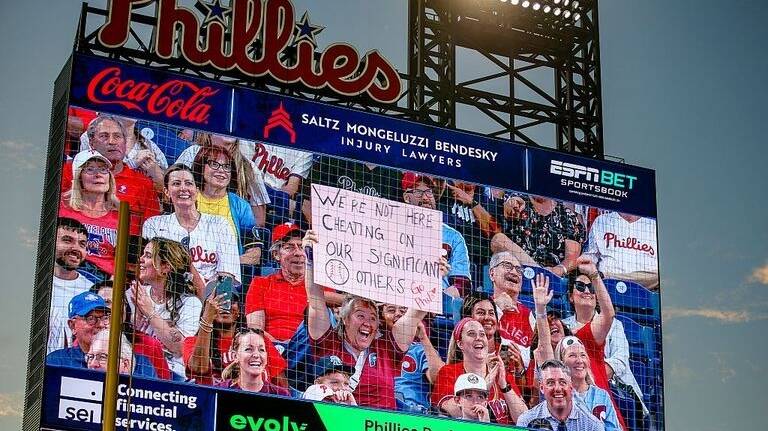 Phillies
Coca-Cola
SALTZ MONGELUZZI BENDESKY
INJURY LAWYERS
ESPN BET
SPORTSBOOK
Phillies
WE'RE NOT HERE
CHEATING ON
OUR SIGNIFICANT
OTHERS
Go
Phils
Phillies
Phillies
sei
Connecting
financial
services.
evolv
Phillies